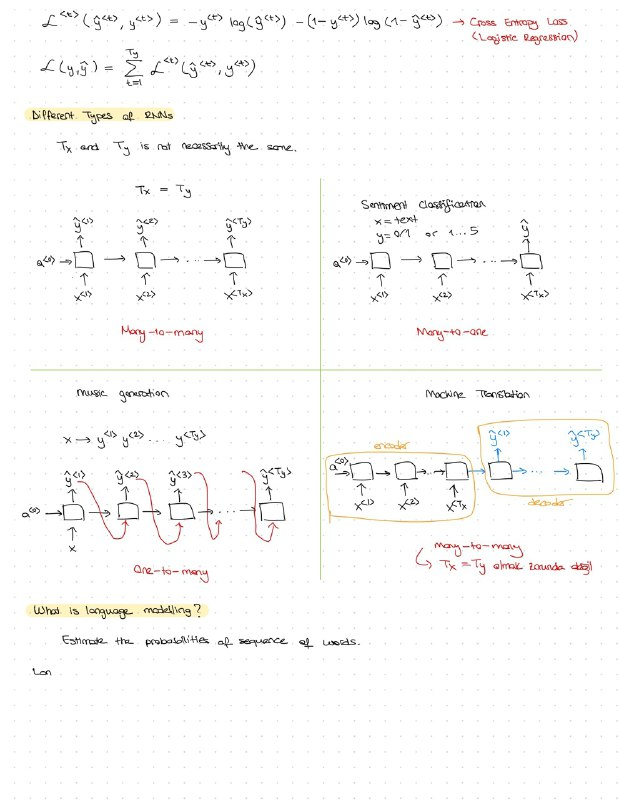 ℒ^<t>(ŷ^<t>, y^<t>) = -y^<t> log(ŷ^<t>) - (1-y^<t>) log(1-ŷ^<t>) → Cross Entropy Loss
(Logistic Regression)
ℒ(y,ŷ) = Σ_{t=1}^{Ty} ℒ^<t>(ŷ^<t>, y^<t>)
Different Types of RNNs
Tx and Ty is not necessarily the same.
Tx = Ty
ŷ^<1> ŷ^<2> ŷ^<Ty>
a^<0> → → → ... →
x^<1> x^<2> x^<Tx>
Many-to-many
Sentiment Classification
x = text
y = 0/1 or 1...5
ŷ
a^<0> → → → ... →
x^<1> x^<2> x^<Tx>
Many-to-one
music generation
x → y^<1> y^<2> ... y^<Ty>
ŷ^<1> ŷ^<2> ŷ^<3> ŷ^<Ty>
a^<0> → → → → ... →
x
One-to-many
Machine Translation
encoder
ŷ^<1> ŷ^<Ty>
a^<0> → → → ... → → → ... →
x^<1> x^<2> x^<Tx>
decoder
many-to-many
↳ Tx = Ty olmak zorunda değil
What is language modelling?
Estimate the probabilities of sequence of words.
Lan